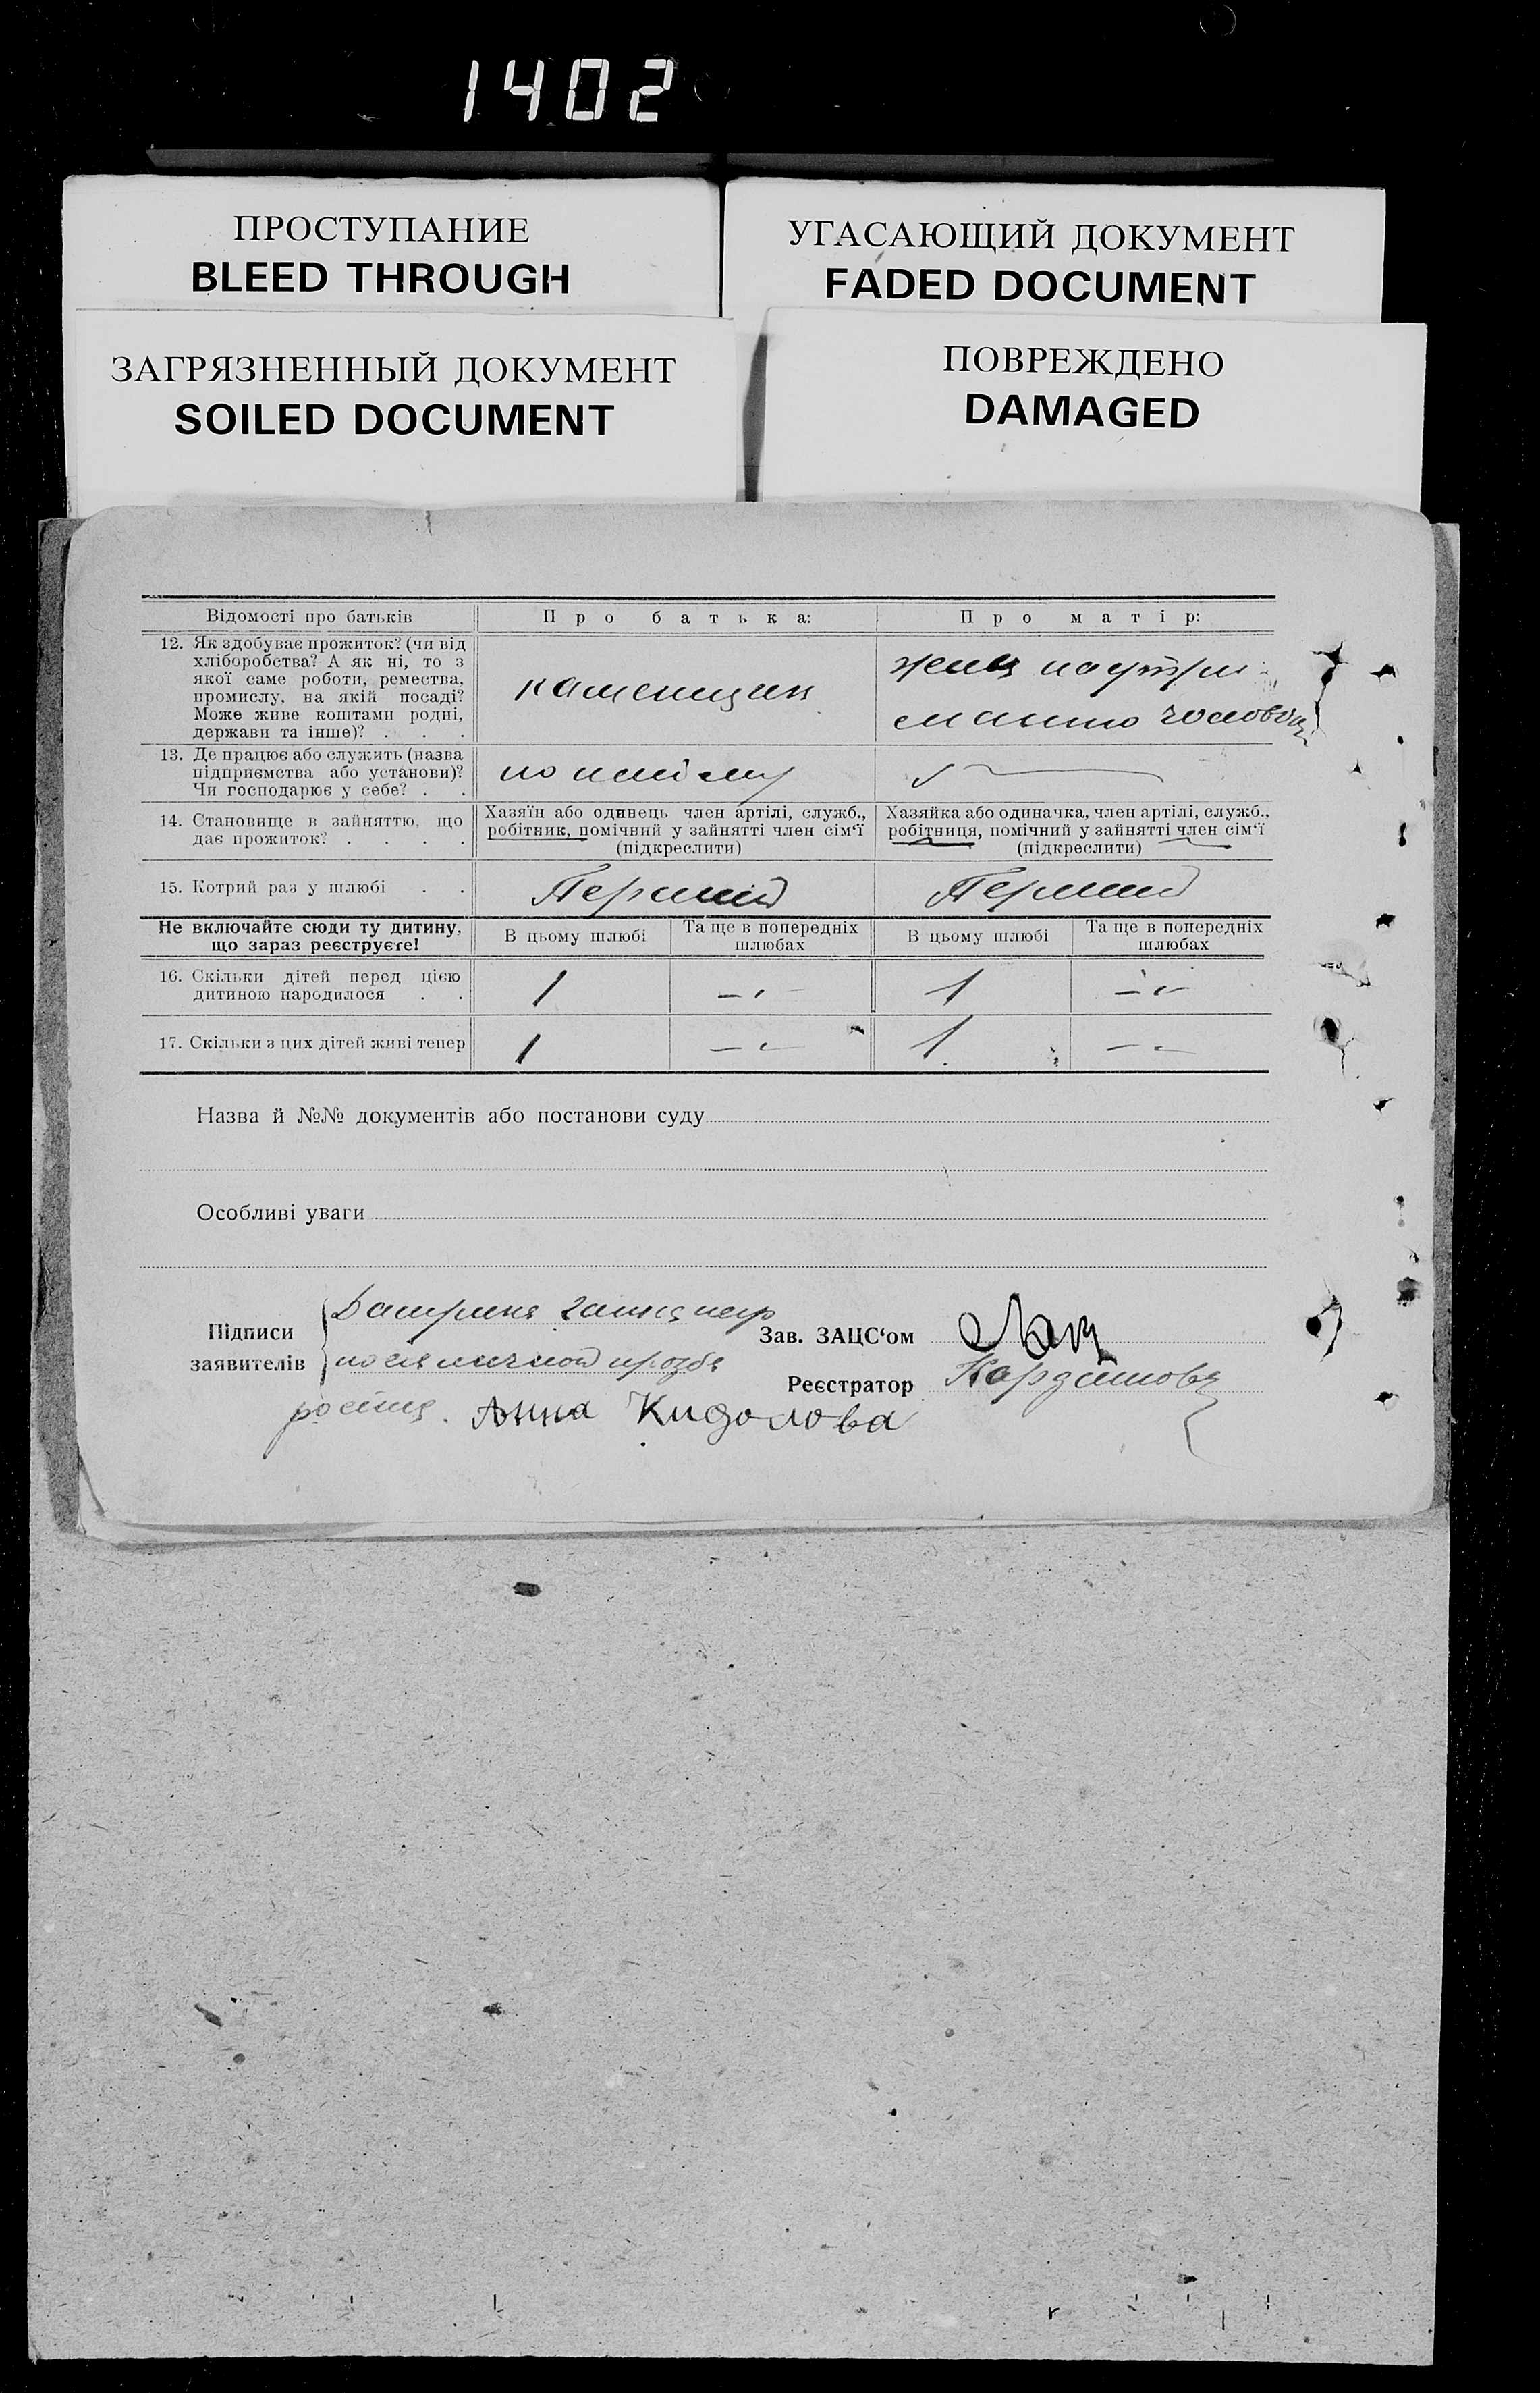 1402
ПРОСТУПАНИЕ
BLEED THROUGH
УГАСАЮЩИЙ ДОКУМЕНТ
FADED DOCUMENT
ЗАГРЯЗНЕННЫЙ ДОКУМЕНТ
SOILED DOCUMENT
ПОВРЕЖДЕНО
DAMAGED
Відомості про батьків
Про батька:
Про матір:
12. Як здобуває прожиток? (чи від
хліборобства? А як ні, то з
якої саме роботи, ремества,
промислу, на якій посаді?
Може живе коштами родні,
держави та інше)? . . .
каменщик
жена на утри-
манню чоловіка
13. Де працює або служить (назва
підприємства або установи)?
Чи господарює у себе? . .
по найому
14. Становище в зайняттю, що
дає прожиток? . . . .
Хазяїн або одинець член артілі, служб.,
робітник, помічний у зайнятті член сім'ї
(підкреслити)
Хазяйка або одиначка, член артілі, служб.,
робітниця, помічний у зайнятті член сім'ї
(підкреслити)
15. Котрий раз у шлюбі . .
Перший
Перший
Не включайте сюди ту дитину,
що зараз реєструєте!
В цьому шлюбі
Та ще в попередніх
шлюбах
В цьому шлюбі
Та ще в попередніх
шлюбах
16. Скільки дітей перед цією
дитиною народилося . .
1
1
17. Скільки з цих дітей живі тепер
1
1
Назва й №№ документів або постанови суду
Особливі уваги
Підписи
заявителів
по ея личной прозбе
Зав. ЗАЦС'ом
Реєстратор
Анна Кидолова